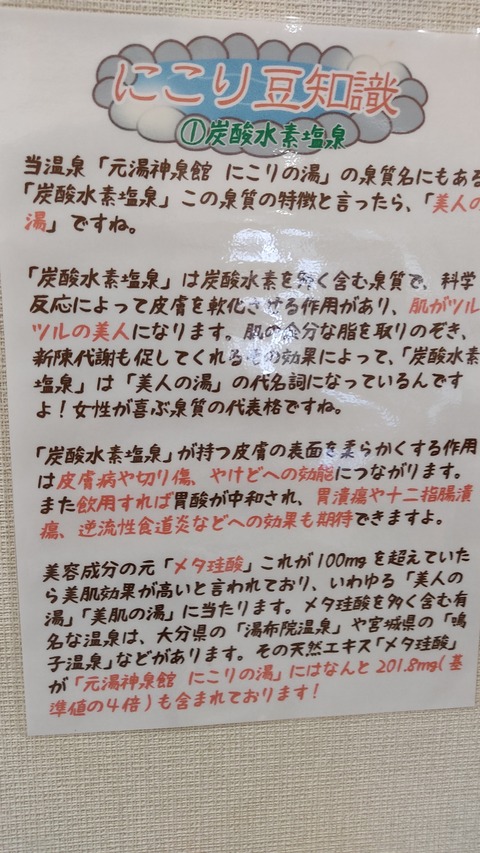 にこり豆知識
①炭酸水素塩泉
当温泉「元湯神泉館 にこりの湯」の泉質名にもある
「炭酸水素塩泉」この泉質の特徴と言ったら、「美人の
湯」ですね。
「炭酸水素塩泉」は炭酸水素を多く含む泉質で、科学
反応によって皮膚を軟化させる作用があり、肌がツル
ツルの美人になります。肌の余分な脂を取りのぞき、
新陳代謝も促してくれるその効果によって、「炭酸水素
塩泉」は「美人の湯」の代名詞になっているんです
よ！女性が喜ぶ泉質の代表格ですね。
「炭酸水素塩泉」が持つ皮膚の表面を柔らかくする作用
は皮膚病や切り傷、やけどへの効能につながります。
また飲用すれば胃酸が中和され、胃潰瘍や十二指腸潰
瘍、逆流性食道炎などへの効果も期待できますよ。
美容成分の元「メタ珪酸」これが100mgを超えていた
ら美肌効果が高いと言われており、いわゆる「美人の
湯」「美肌の湯」に当たります。メタ珪酸を多く含む有
名な温泉は、大分県の「湯布院温泉」や宮城県の「鳴
子温泉」などがあります。その天然エキス「メタ珪酸」
が「元湯神泉館 にこりの湯」にはなんと201.8mg(基
準値の4倍)も含まれております！